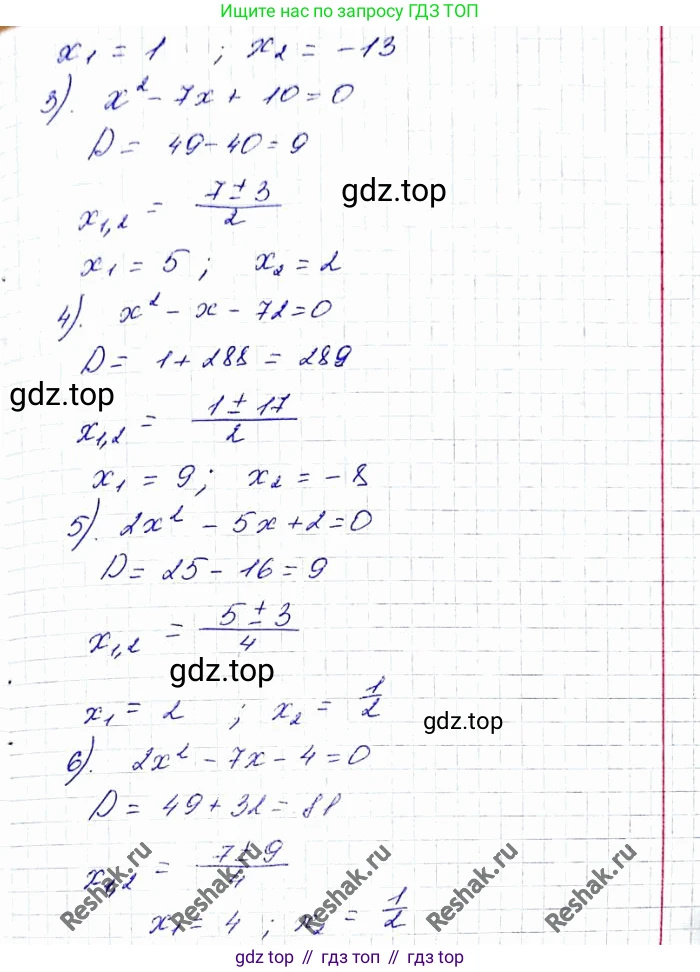 Ищите нас по запросу ГДЗ ТОП
x₁ = 1 ; x₂ = -13
3). x² - 7x + 10 = 0
D = 49 - 40 = 9
x₁,₂ = (7 ± 3)/2
gdz.top
x₁ = 5 ; x₂ = 2
4). x² - x - 72 = 0
D = 1 + 288 = 289
gdz.top
x₁,₂ = (1 ± 17)/2
x₁ = 9 ; x₂ = -8
5). 2x² - 5x + 2 = 0
D = 25 - 16 = 9
x₁,₂ = (5 ± 3)/4
gdz.top
x₁ = 2 ; x₂ = 1/2
gdz.top
6). 2x² - 7x - 4 = 0
D = 49 + 32 = 81
x₁,₂ = (7 ± 9)/4
Reshak.ru Reshak.ru Reshak.ru Reshak.ru Reshak.ru
x₁ = 4 ; x₂ = 1/2
gdz.top // гдз.топ // gdz.top // гдз.топ